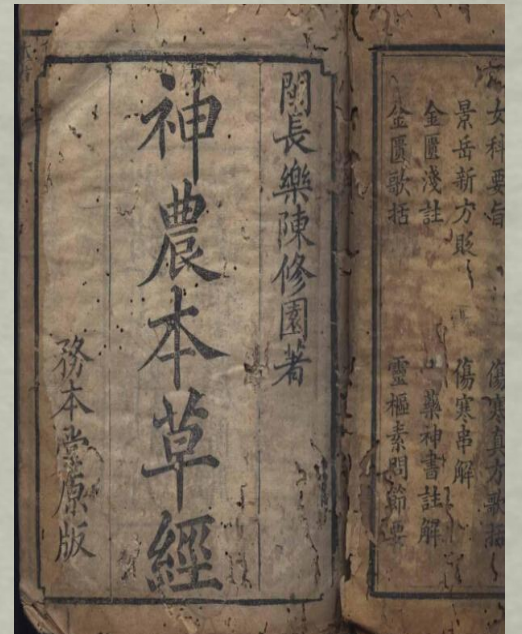 女科要旨 傷寒真方歌括
景岳新方 傷寒串解
金匱淺註 藥神書註解
金匱歌括 靈樞素問節要
閩長樂陳修園著
神農本草經
務本堂原版